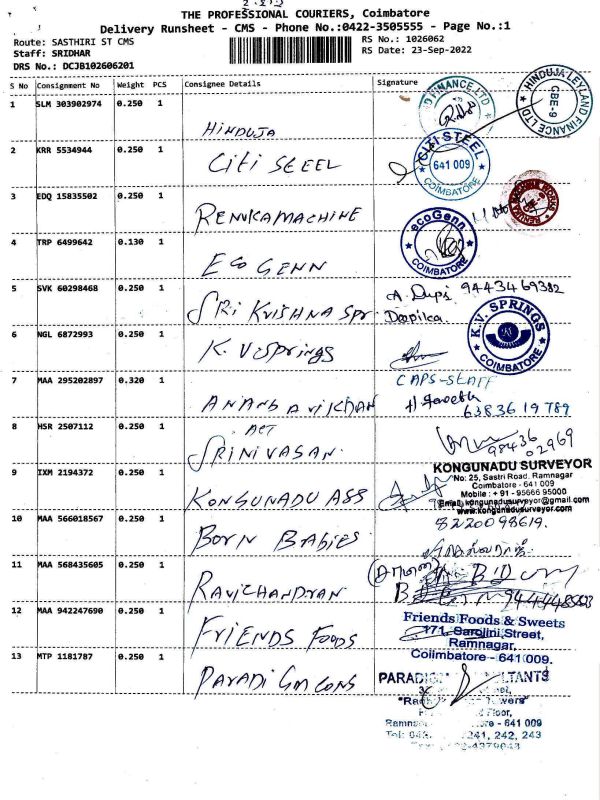 THE PROFESSIONAL COURIERS, Coimbatore
Delivery Runsheet - CMS - Phone No.:0422-3505555 - Page No.:1
Route: SASTHIRI ST CMS
RS No.: 1026062
Staff: SRIDHAR
RS Date: 23-Sep-2022
DRS No.: DCJB102606201
S No Consignment No Weight PCS Consignee Details Signature
1 SLM 303902974 0.250 1 HINDUJA
D FINANCE LTD
HINDUJA LEYLAND FINANCE LTD
CBE-9
2 KRR 5534944 0.250 1 CITI STEEL
CITI STEEL
641 009
COIMBATORE
3 EDQ 15835502 0.250 1 RENUKAMACHINE
4 TRP 6499642 0.130 1 ECO GENN
ecoGenn
COIMBATORE
5 SVK 60298468 0.250 1 SRI KRISHNA SPr
9443469382
Deepika
6 NGL 6872993 0.250 1 K. V. Springs
K.V. SPRINGS
COIMBATORE
7 MAA 295202897 0.320 1
CAPS-STAFF
6383619789
8 HSR 2507112 0.250 1 SRINIVASAN
98436
02969
9 IXM 2194372 0.250 1 KONGUNADU ASS
KONGUNADU SURVEYOR
No: 25, Sastri Road, Ramnagar
Coimbatore - 641 009
Mobile : + 91 - 95666 95000
Email: kongunadusurveyor@gmail.com
www.kongunadusurveyor.com
10 MAA 566018567 0.250 1 BORN BABIES
8220098619.
11 MAA 568435605 0.250 1 RAVICHANDRAN
12 MAA 942247690 0.250 1 FRIENDS FOODS
Friends Foods & Sweets
171, Sarojini Street,
Ramnagar,
Coimbatore - 641 009.
13 MTP 1181787 0.250 1 PARADIGM CONS